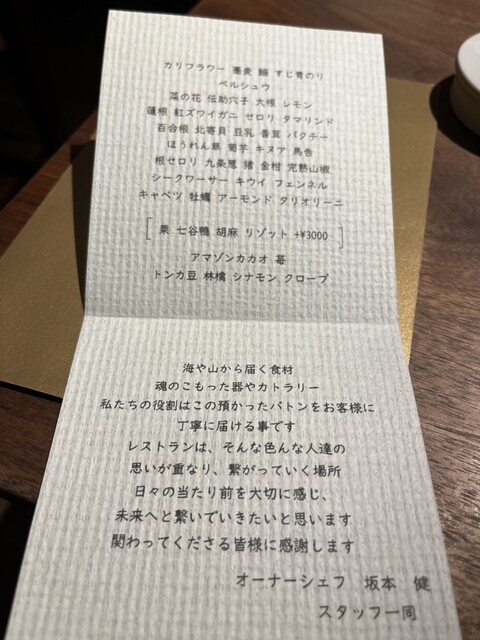 カリフラワー 蕎麦 鰯 すじ青のり
ペルシュウ
菜の花 伝助穴子 大根 レモン
蓮根 紅ズワイガニ セロリ タマリンド
百合根 北寄貝 豆乳 香茸 パクチー
ほうれん草 菊芋 キヌア 馬告
根セロリ 九条葱 猪 金柑 完熟山椒
シークワーサー キウイ フェンネル
キャベツ 牡蠣 アーモンド タリオリーニ
[ 栗 七谷鴨 胡麻 リゾット +¥3000 ]
アマゾンカカオ 苺
トンカ豆 林檎 シナモン クローブ
海や山から届く食材
魂のこもった器やカトラリー
私たちの役割はこの預かったバトンをお客様に
丁寧に届ける事です
レストランは、そんな色んな人達の
思いが重なり、繋がっていく場所
日々の当たり前を大切に感じ、
未来へと繋いでいきたいと思います
関わってくださる皆様に感謝します
オーナーシェフ 坂本 健
スタッフ一同